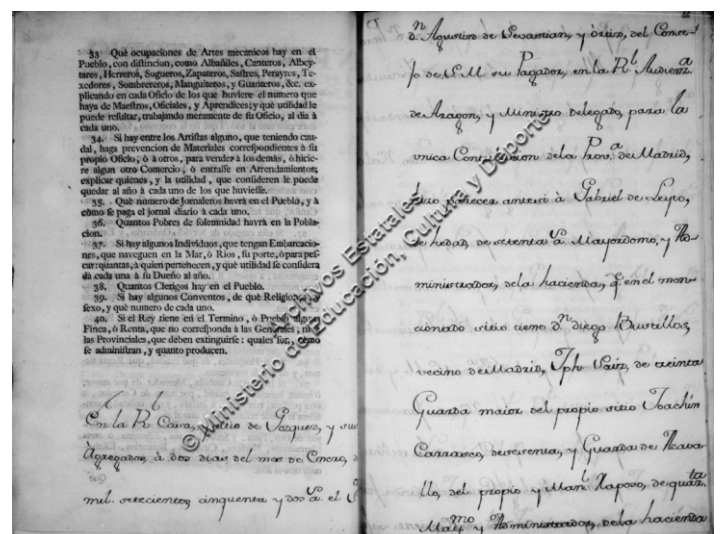 33 Què ocupaciones de Artes mecanicos hay en el
Pueblo, con distincion, como Albañiles, Canteros, Albey-
tares, Herreros, Sogueros, Zapateros, Sastres, Perayres, Te-
xedores, Sombrereros, Manguiteros, y Guanteros, &c. ex-
plicando en cada Oficio de los que huviere el numero que
haya de Maestros, Oficiales, y Aprendices; y què utilidad le
puede resultar, trabajando meramente de su Oficio, al dia à
cada uno.
34. Si hay entre los Artistas alguno, que teniendo cau-
dal, haga prevencion de Materiales correspondientes à su
propio Oficio, ò à otros, para vender à los demàs, ò hicie-
re algun otro Comercio, ò entrasse en Arrendamientos;
explicar quienes, y la utilidad, que consideren le puede
quedar al año à cada uno de los que huviesse.
35. Què numero de Jornaleros havrà en el Pueblo, y à
còmo se paga el jornal diario à cada uno.
36. Quantos Pobres de solemnidad havrà en la Pobla-
cion.
37. Si hay algunos Individuos, que tengan Embarcacio-
nes, que naveguen en la Mar, ò Rios, su porte, ò para pes-
car: quantas, à quien pertenecen, y què utilidad se considera
dà cada una à su Dueño al año.
38. Quantos Clerigos hay en el Pueblo.
39. Si hay algunos Conventos, de què Religiones, y
sexo, y què numero de cada uno.
40. Si el Rey tiene en el Termino, ò Pueblo alguna
Finca, ò Renta, que no corresponda à las Generales, ni à
las Provinciales, que deben extinguirse: quales son, còmo
se administran, y quanto producen.
En la Rl Casa, y sitio de Gozquez, y sus
Agregados, à dos dias del mes de Enero, de
mil setecientos, cinquenta y dos as. el Sr
Dn Agustin de Sevastian, y Ortiz, del Conse-
jo de S.M. su Pagador, en la Rl Audienza
de Aragon, y Ministro delegado, para la
unica Contribucion de la Prova de Madrid,
hizo parecer antesi à Gabriel de
de hedad, de setenta as Mayordomo, y Ad-
ministrador, de la hacienda, qe en el men-
cionado sitio tiene Dn diego Bustillos,
vecino de Madrid, Jph Saiz, de treinta
Guarda maior del propio sitio Joachin
Carrasco, de sesenta, y Guarda de Acava-
llo, del propio y Manl Raposo, de quarta
Maymo y Administrador, de la hacienda
© Ministerio de Educación, Cultura y Deporte
Archivos Estatales